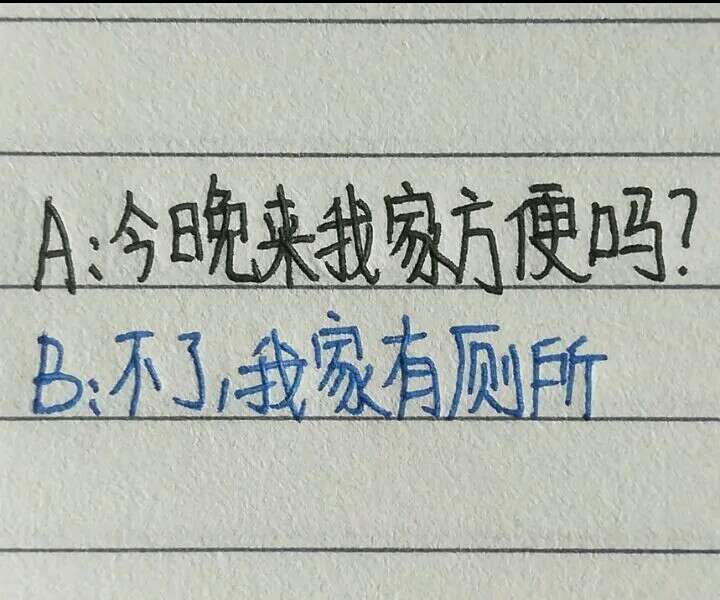 A:今日晚来我家方便吗?
B:不了,我家有厕所